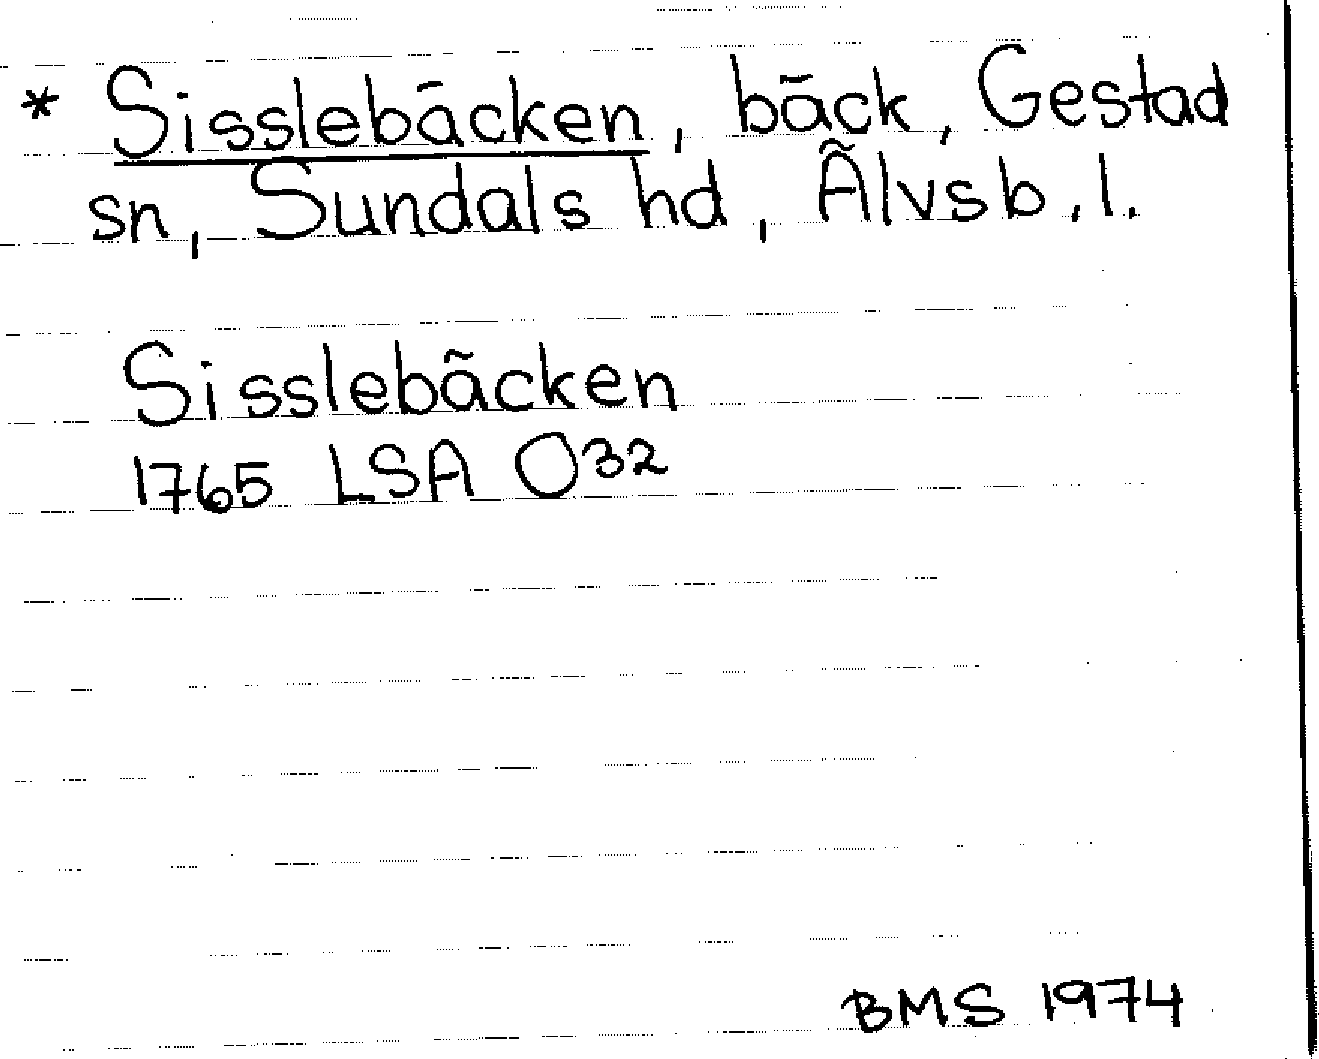 * Sisslebäcken, bäck, Gestad
sn, Sundals hd, Älvsb. l.
Sisslebäcken
1765 LSA O32
BMS 1974